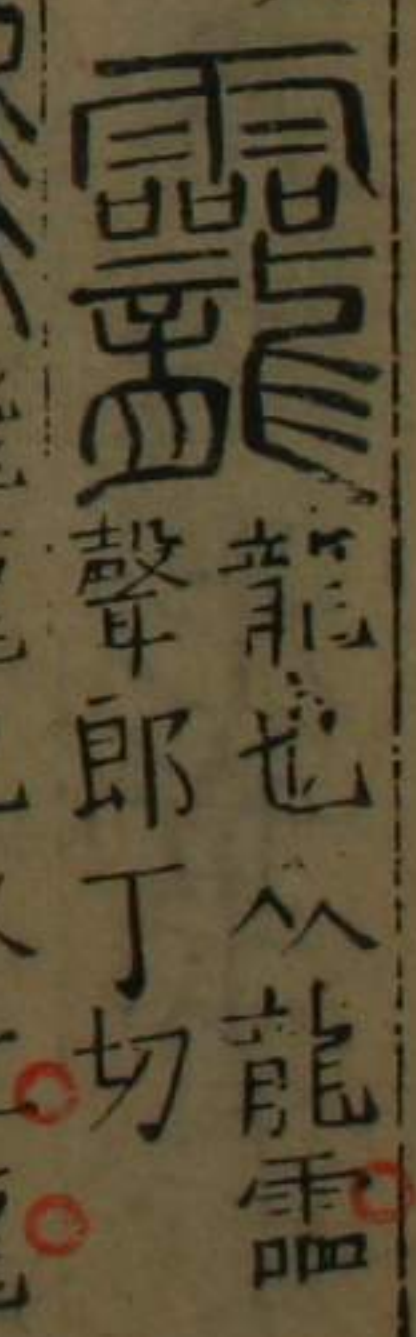 龗
龍也从龍霝
聲郎丁切